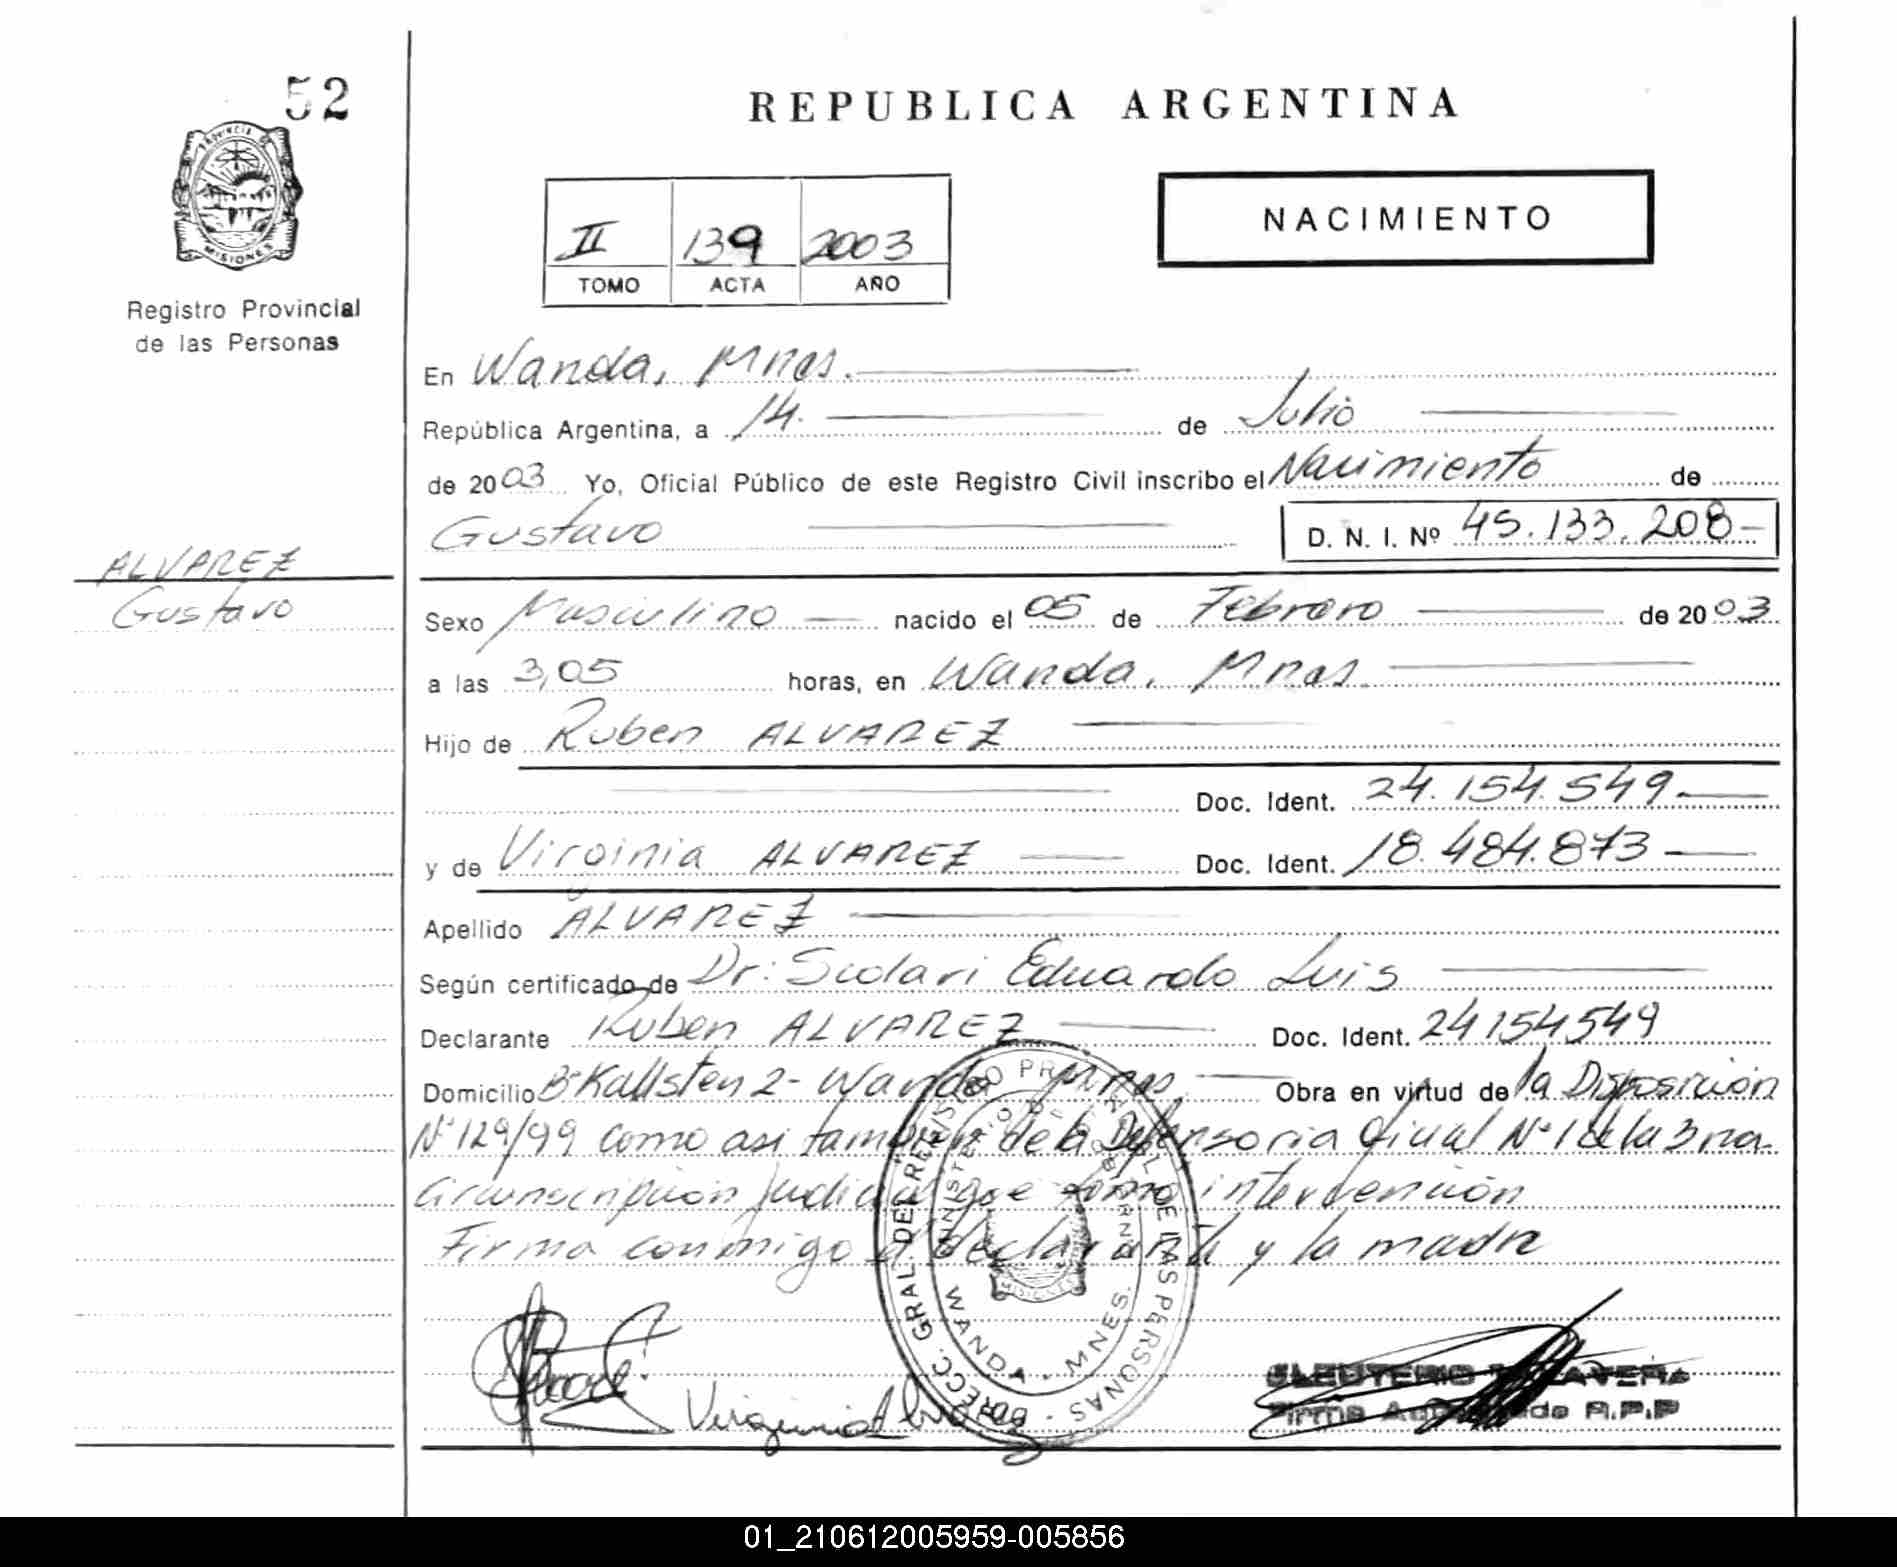 52
PROVINCIA DE
MISIONES
Registro Provincial
de las Personas
ALVAREZ
Gustavo
REPUBLICA ARGENTINA
NACIMIENTO
II 139 2003
TOMO ACTA AÑO
En Wanda, Mnes.
República Argentina, a 14. de Julio
de 2003 Yo, Oficial Público de este Registro Civil inscribo el Nacimiento de
Gustavo D. N. I. Nº 45.133.208-
Sexo Masculino nacido el 05 de Febrero de 2003
a las 3,05 horas, en Wanda, Mnes.
Hijo de Ruben ALVAREZ
Doc. Ident. 24.154.549.
y de Virginia ALVAREZ Doc. Ident. 18.484.873
Apellido ALVAREZ
Según certificado de Dr: Scolari Eduardo Luis
Declarante Ruben ALVAREZ Doc. Ident. 24154549
Domicilio Bº Kallsten 2- Wanda Mnes Obra en virtud de la Disposición
Nº 129/99 como asi tambien de la Defensoria Oficial Nº 1 de la 3ra.
Circunscripción Judicial que tomo intervención
Firma conmigo el declarante y la madre
DIRECC. GRAL. DEL REGISTRO PROVINCIAL DE LAS PERSONAS
MINISTERIO DE GOBIERNO
WANDA - MNES.
MISIONES
Virginia Alvarez
ELEUTERIO TALAVERA
Firma Autorizada R.P.P
01_210612005959-005856